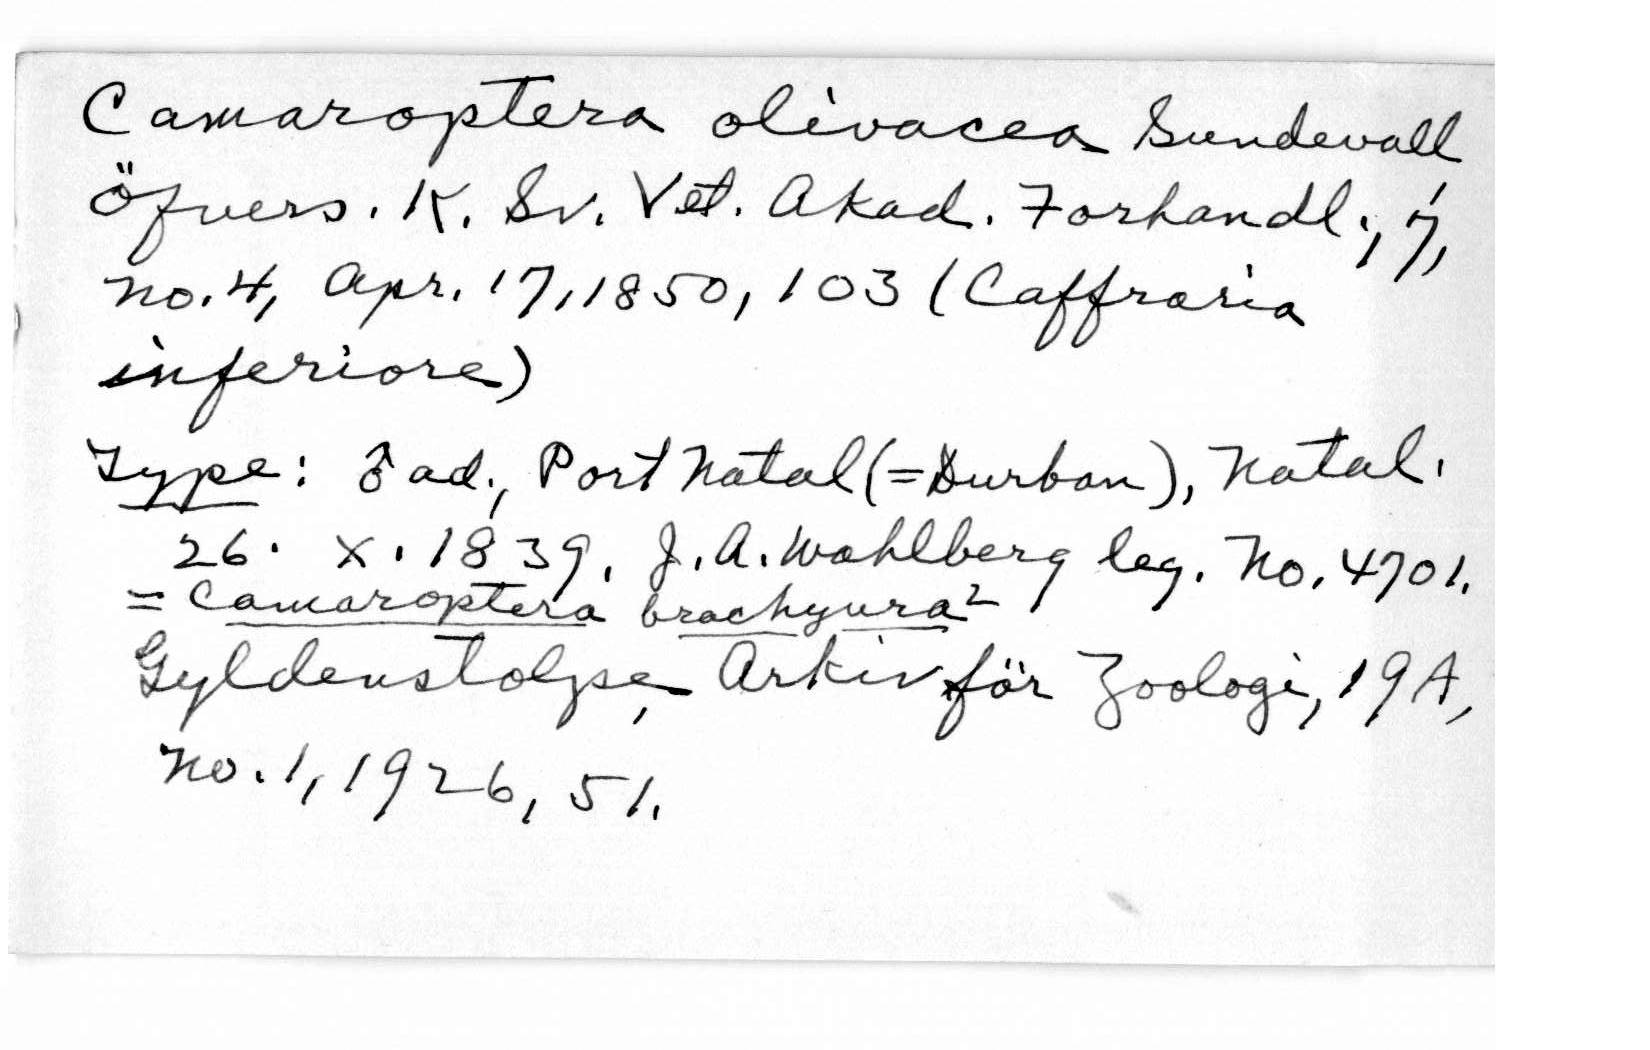 Camaroptera olivacea Sundevall
Öfvers. K. Sv. Vet. Akad. Forhandl., 7,
no. 4, Apr. 17, 1850, 103 (Caffraria
inferiore)
Type: ♂ ad., Port Natal (=Durban), Natal.
26. X. 1839. J. A. Wahlberg leg. No. 4701.
= Camaroptera brachyura²
Gyldenstolpe, Arkiv för Zoologi, 19A,
no. 1, 1926, 51.